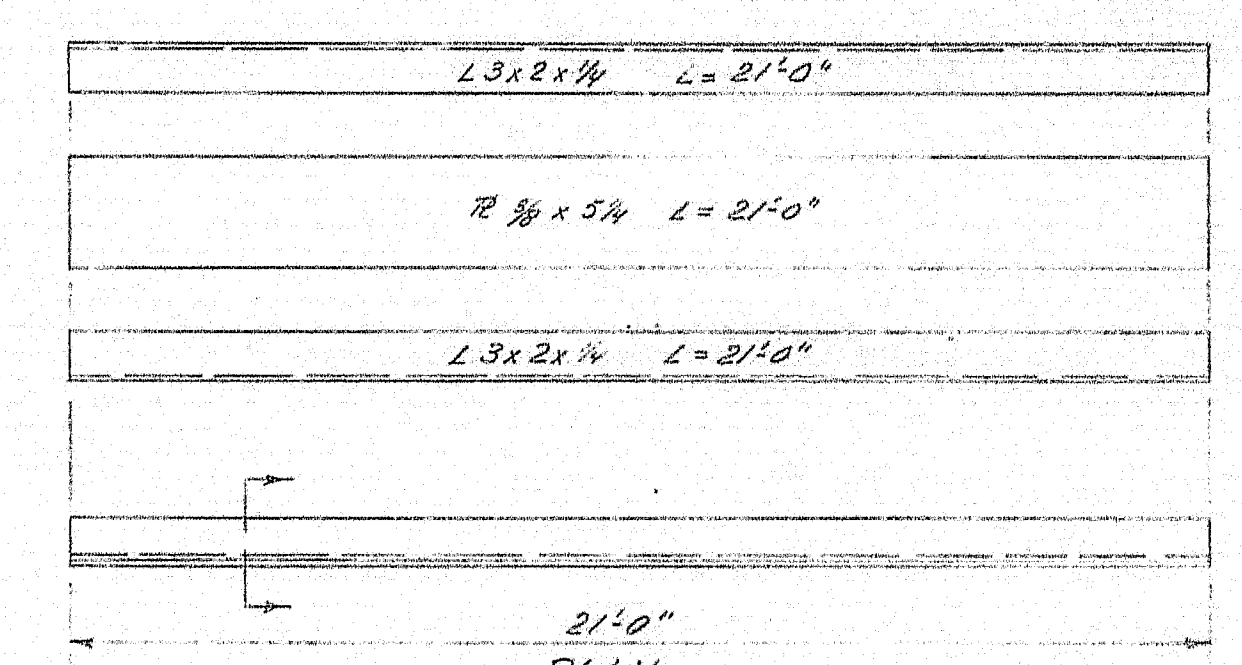 L 3 x 2 x 1/4 L = 21'-0"
PL 3/8 x 5 1/4 L = 21'-0"
L 3 x 2 x 1/4 L = 21'-0"
21'-0"